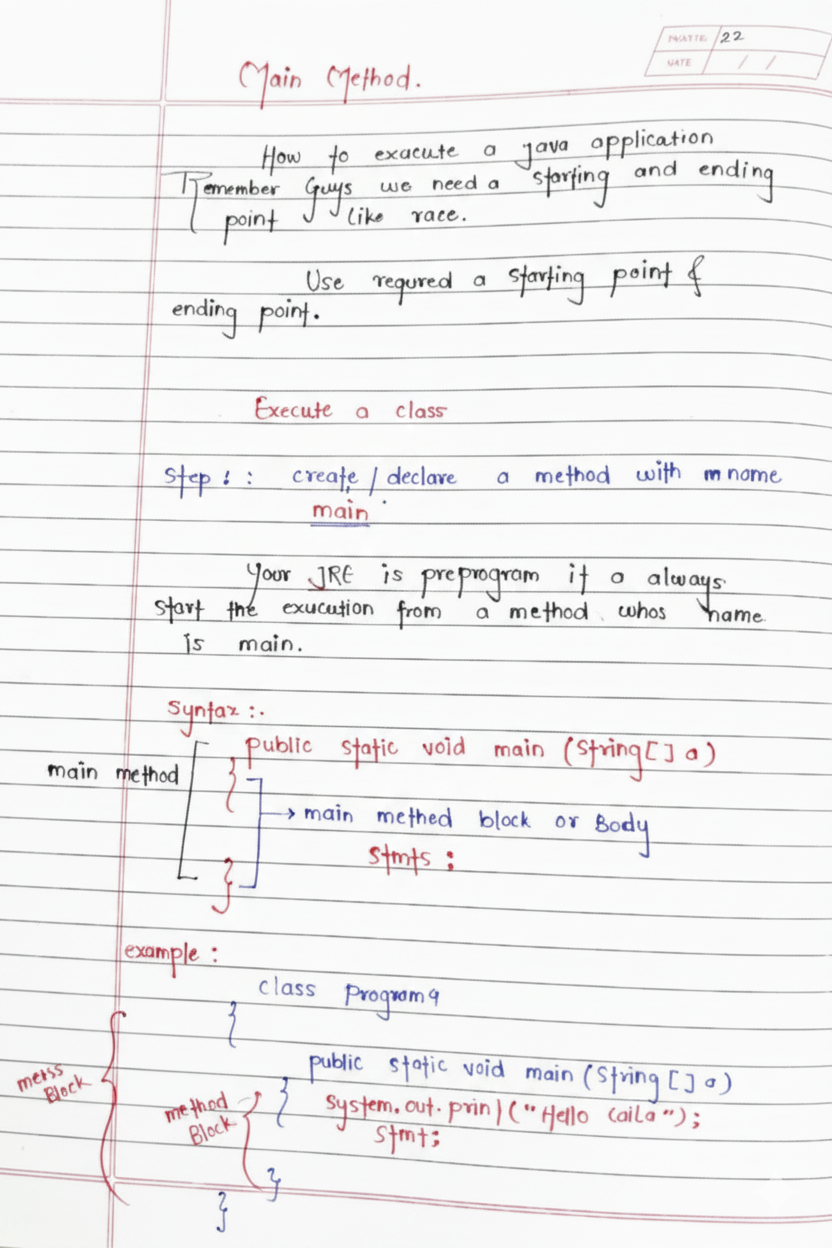 PAGE 22
DATE / /
Main Method.
How to exacute a java application
Remember Guys we need a starting and ending
point like race.
Use requred a starting point &
ending point.
Execute a class
Step : create / declare a method with m name
main
Your JRE is preprogram it a always
start the exucution from a method whos name
is main.
Syntax :.
public static void main (String[] a)
main method
{
→ main methed block or Body
Stmts ;
}
example :
class Program9
{
public static void main (String [] a)
merss
Block
method
Block
{
System.out.prin) ("Hello Caila");
Stmt;
}
}